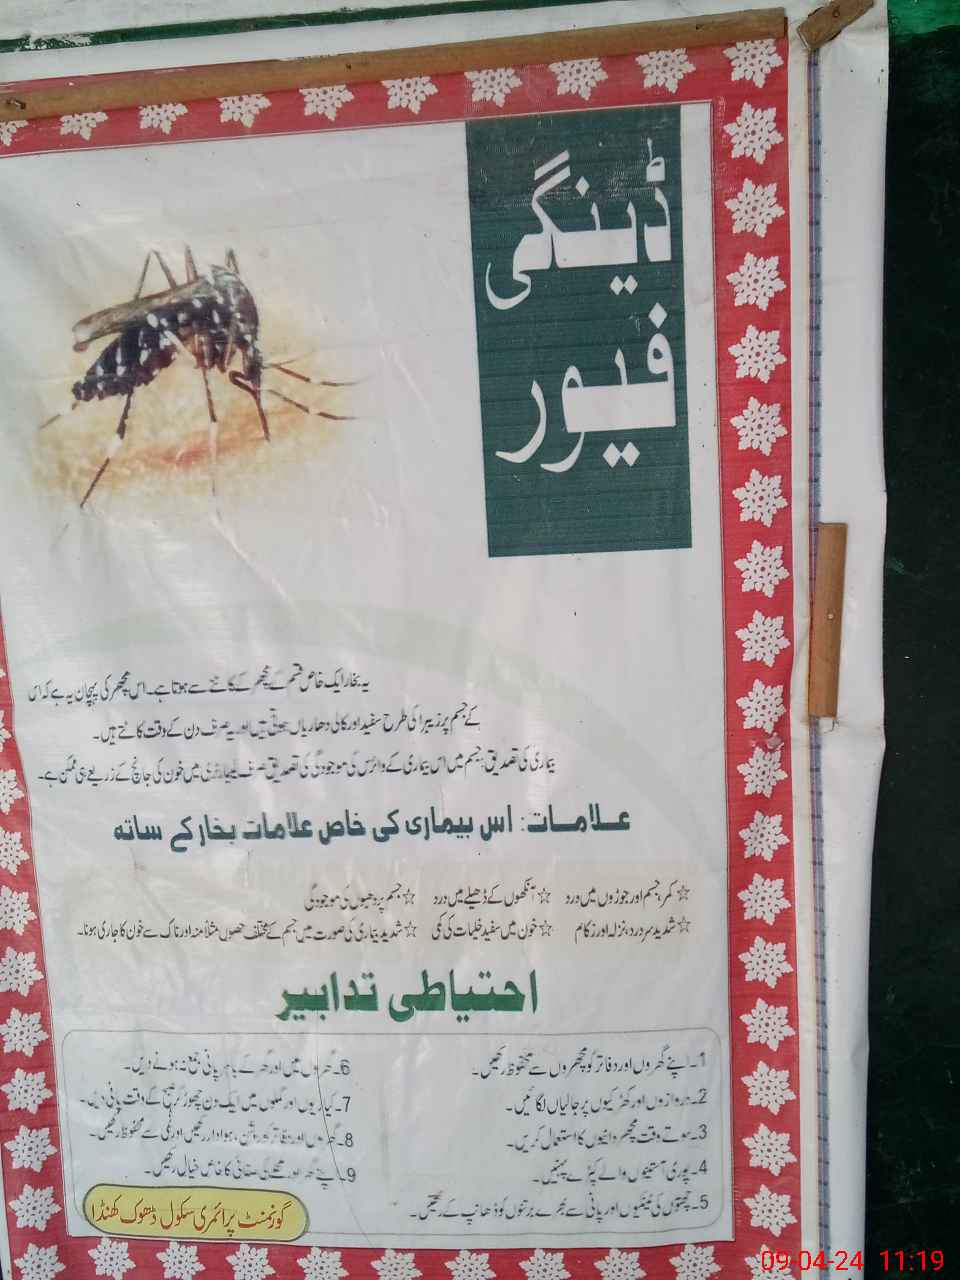 ڈینگی
فیور
یہ بخار ایک خاص قسم کے مچھر کے کاٹنے سے ہوتا ہے۔ اس مچھر کی پہچان یہ ہے کہ اس
کے جسم پر زیبرا کی طرح سفید اور کالی دھاریاں ہوتی ہیں اور یہ صرف دن کے وقت کاٹتے ہیں۔
بیماری کی تصدیق: جسم میں اس بیماری کے وائرس کی موجودگی کی تصدیق صرف لیبارٹری میں خون کی جانچ کے زریعے ہی ممکن ہے۔
علامات: اس بیماری کی خاص علامات بخار کے ساتھ
☆ کمر، جسم اور جوڑوں میں درد ☆ آنکھوں کے ڈھیلے میں درد ☆ جسم پر دھبوں کی موجودگی
☆ شدید سر درد، نزلہ اور زکام ☆ خون میں سفید خلیات کی کمی ☆ شدید بیماری کی صورت میں جسم کے مختلف حصوں مثلاً منہ اور ناک سے خون کا جاری ہونا۔
احتیاطی تدابیر
1۔ اپنے گھروں اور دفاتر کو مچھروں سے محفوظ رکھیں۔
2۔ دروازوں اور کھڑکیوں پر جالیاں لگائیں۔
3۔ سوتے وقت مچھر دانیوں کا استعمال کریں۔
4۔ پوری آستینوں والے کپڑے پہنیں۔
5۔ چھتوں کی ٹینکیوں اور پانی سے بھرے برتنوں کو ڈھانپ کے رکھیں۔
6۔ گھروں میں اور گھر کے باہر پانی جمع نہ ہونے دیں۔
7۔ کیاریوں اور گملوں میں ایک دن چھوڑ کر صبح کے وقت پانی دیں۔
8۔ گھروں اور دفاتر کو روشن، ہوادار رکھیں اور نمی سے محفوظ رکھیں۔
9۔ اپنے گھر اور محلے کی صفائی کا خاص خیال رکھیں۔
گورنمنٹ پرائمری سکول ڈھوک کھنڈا
09-04-24 11:19